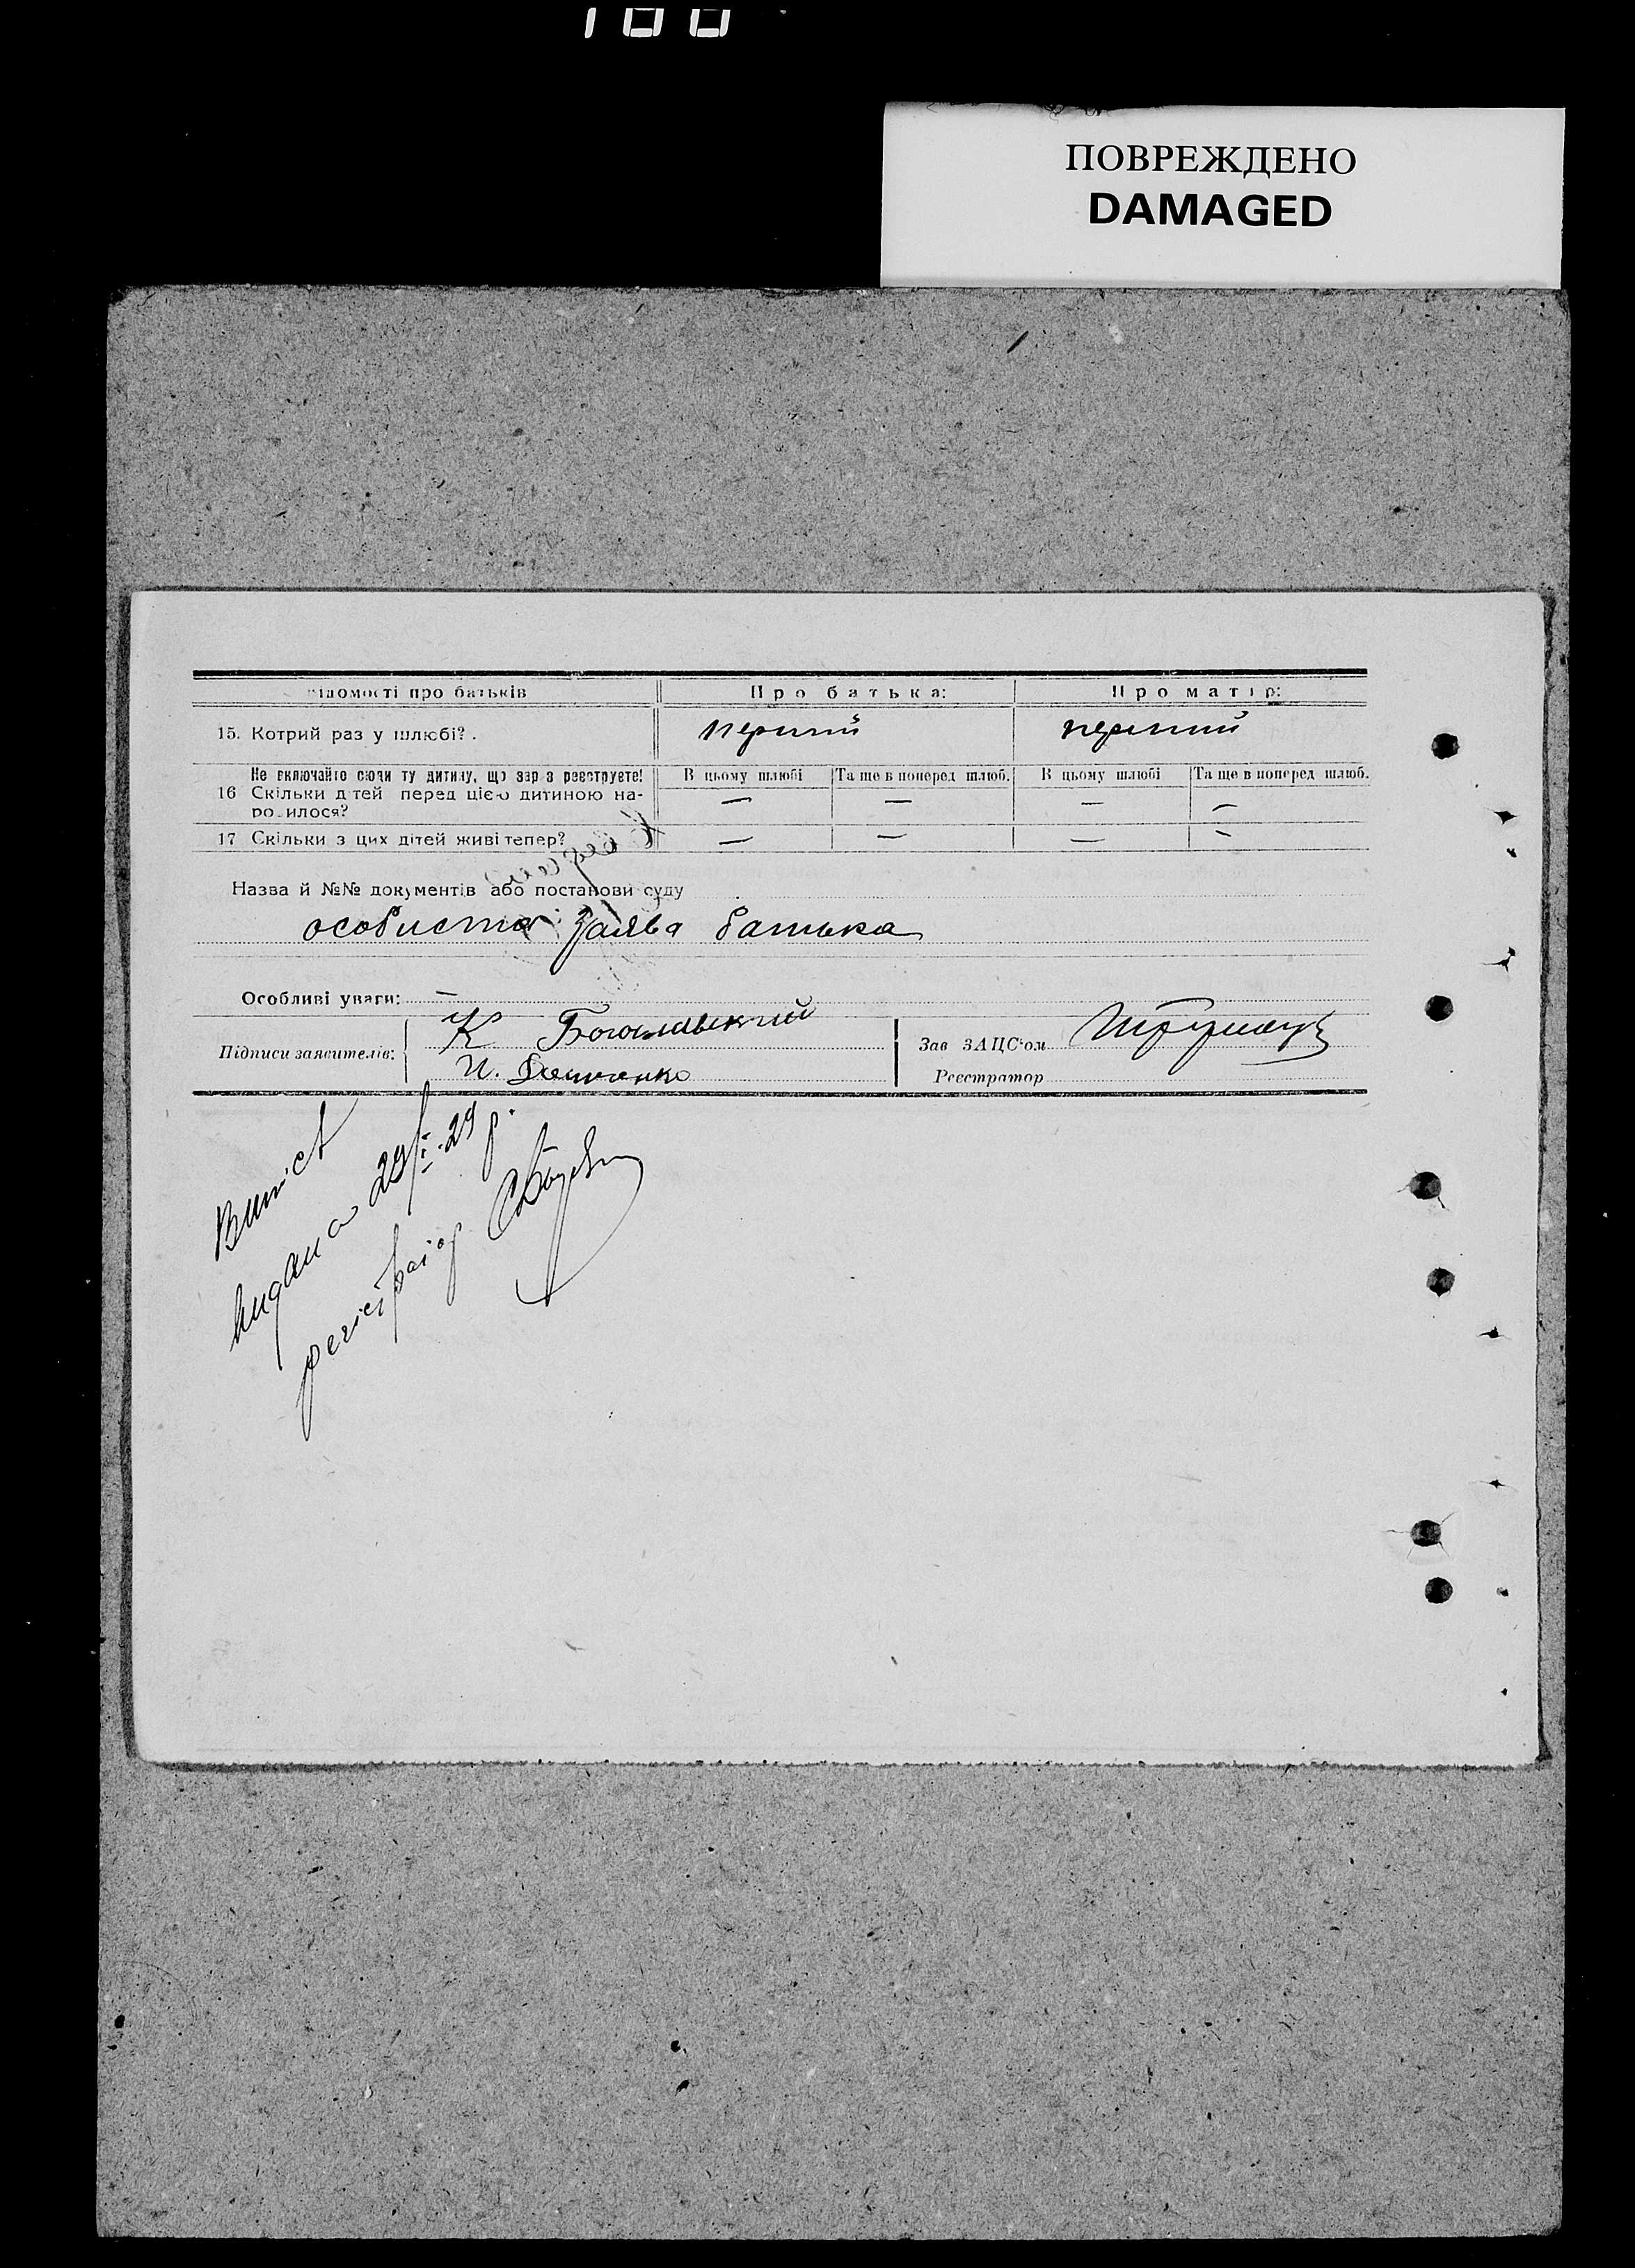 ПОВРЕЖДЕНО
DAMAGED
відомості про батьків
Про батька:
Про матір:
15. Котрий раз у шлюбі?
перший
перший
Не включайте сюди ту дитину, що зараз реєструєте!
В цьому шлюбі
Та ще в поперед шлюб.
В цьому шлюбі
Та ще в поперед шлюб.
16 Скільки дітей перед цією дитиною на-
родилося?
— — — —
17 Скільки з цих дітей живі тепер?
— — — —
Назва й №№ документів або постанови суду
особиста заява батька
Особливі уваги: —
Підписи заявителів:
К Богославський
И.
Зав ЗАЦС'ом
Реєстратор
Випис
видана 29/ 29 р.
регістратор